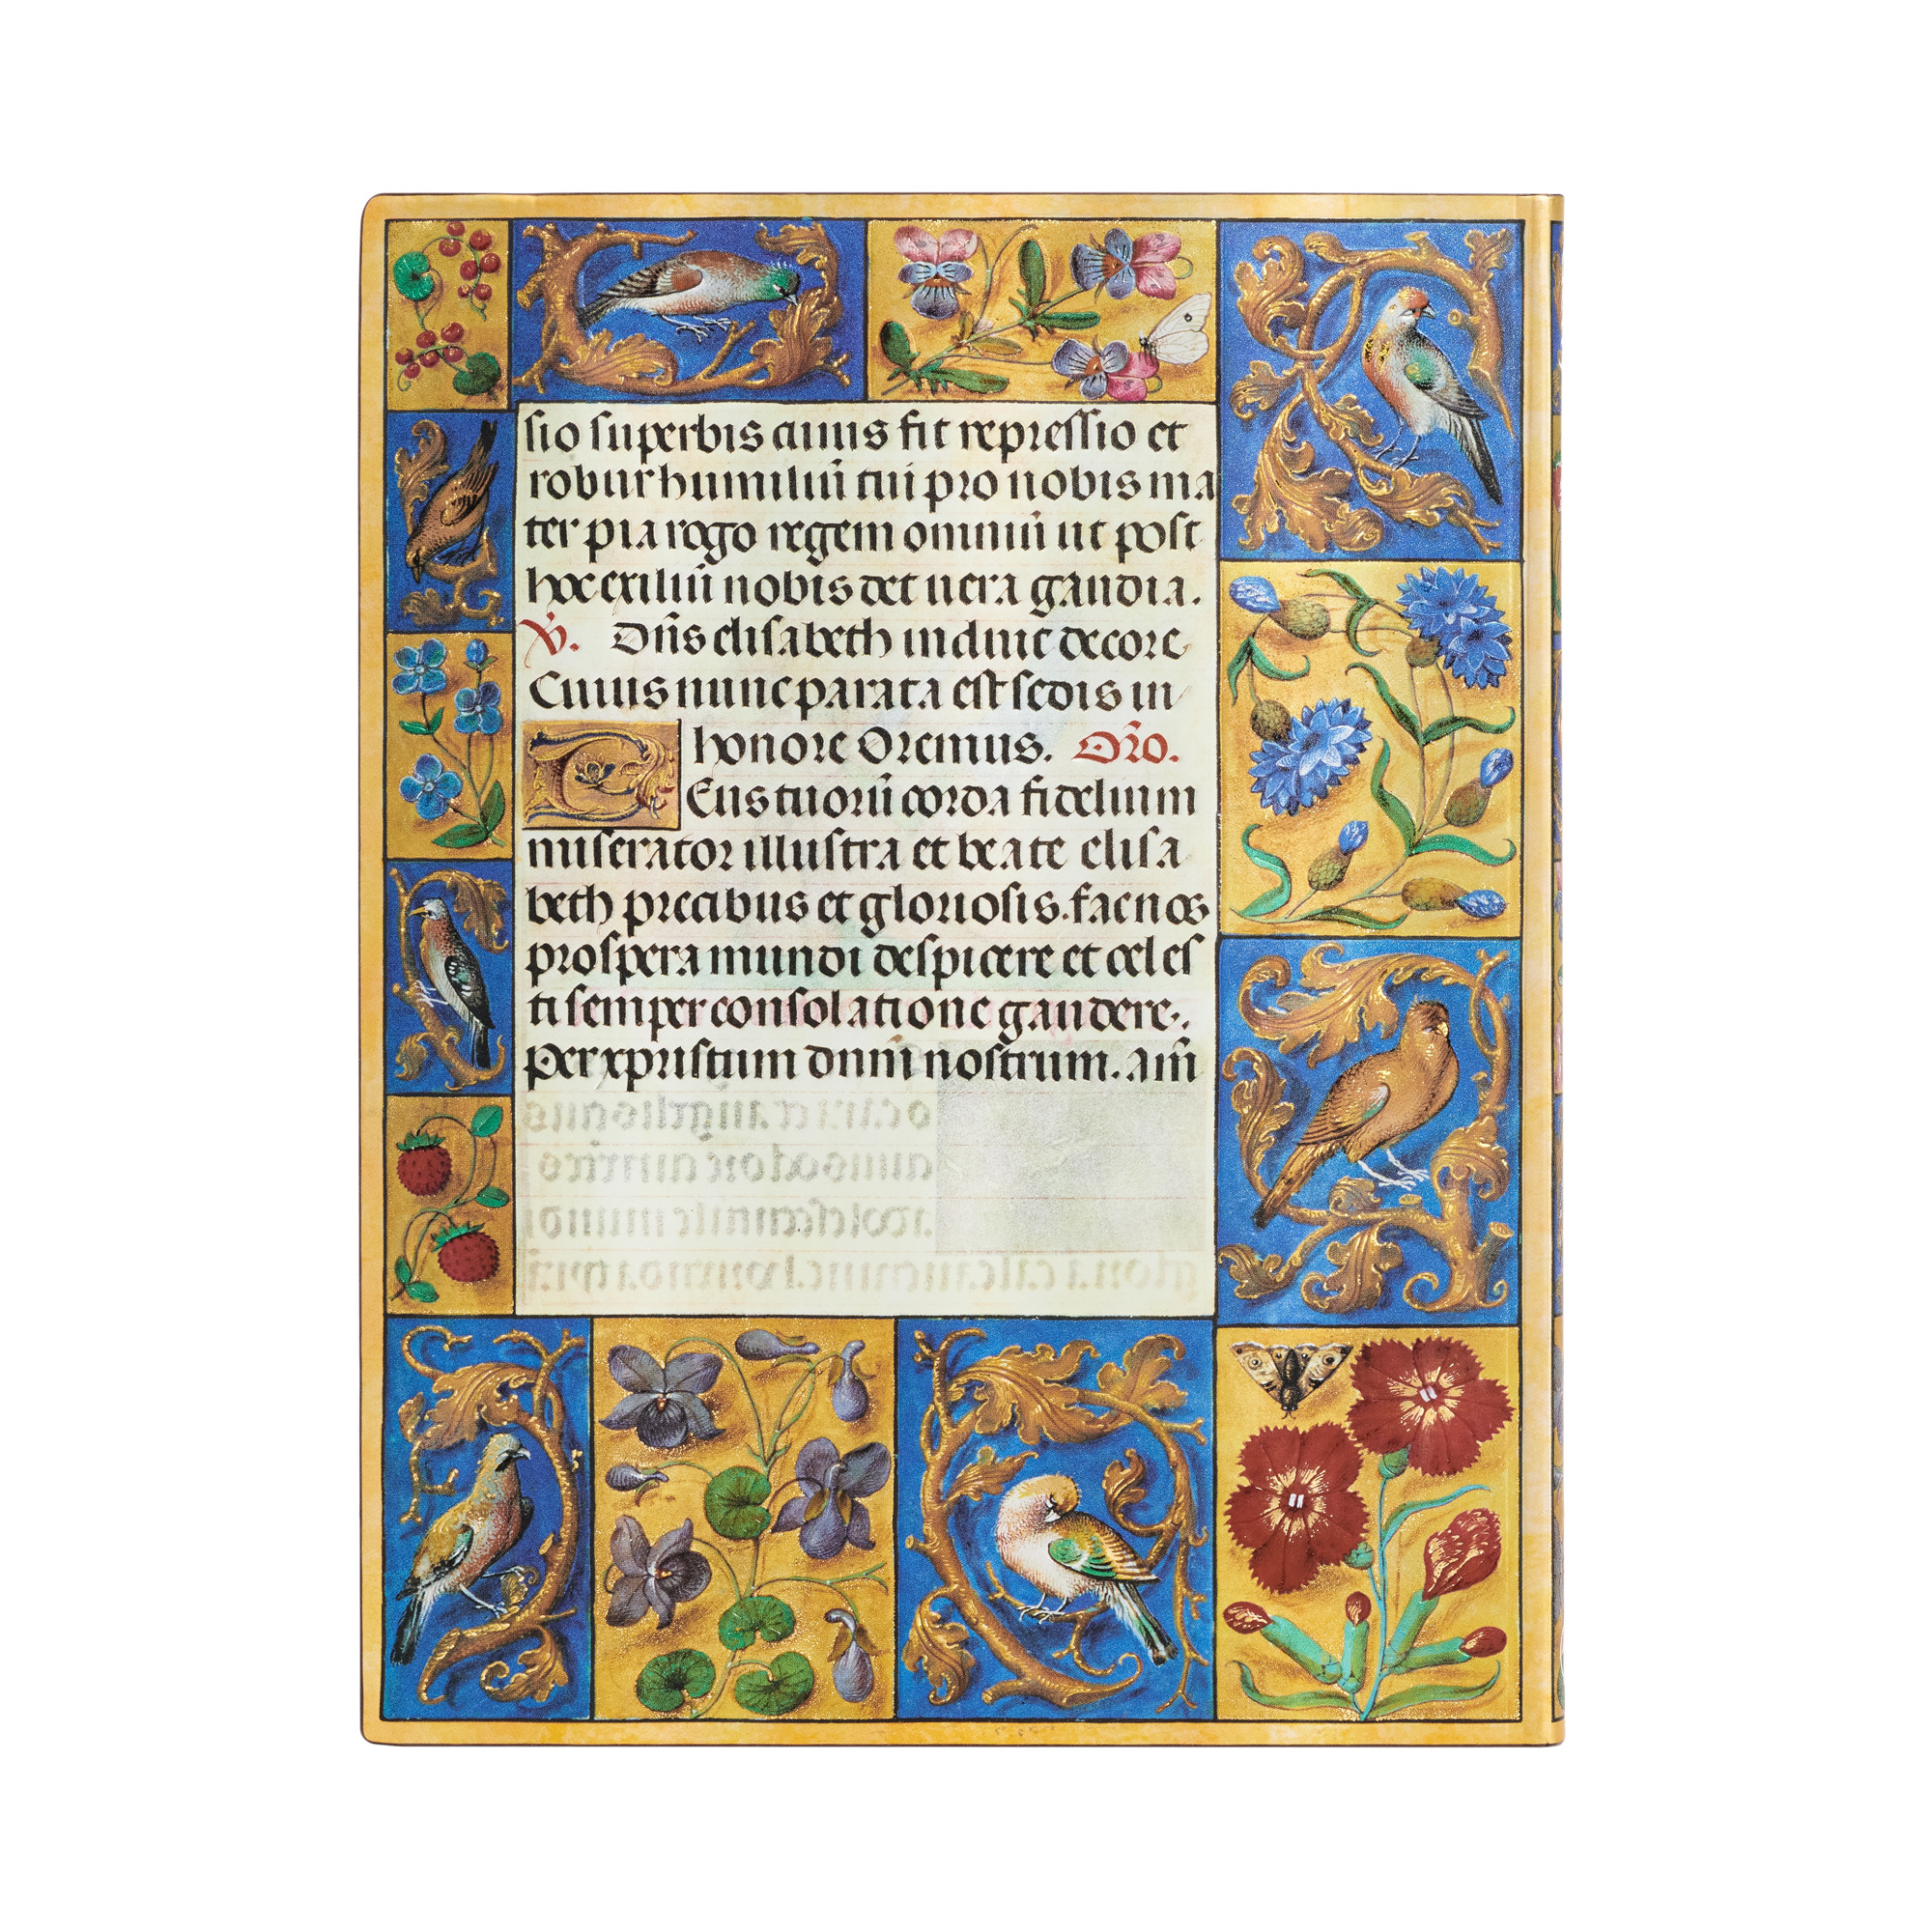 sio superbis cuius fit repressio et
robur humiliū tui pro nobis ma
ter pia rogo regem omniū ut post
hoc exiliū nobis det vera gaudia.
V. Dn̄s elisabeth induit decore
Cuius nunc parata est sedis in
honore Oremus. Or̄o.
Deus tuorū corda fidelium
miserator illustra et beate elisa
beth precibus et gloriosis. fac nos
prospera mundi despicere et celes
ti semper consolatione gaudere.
Per xpristum dnm̄ nostrum. am̄